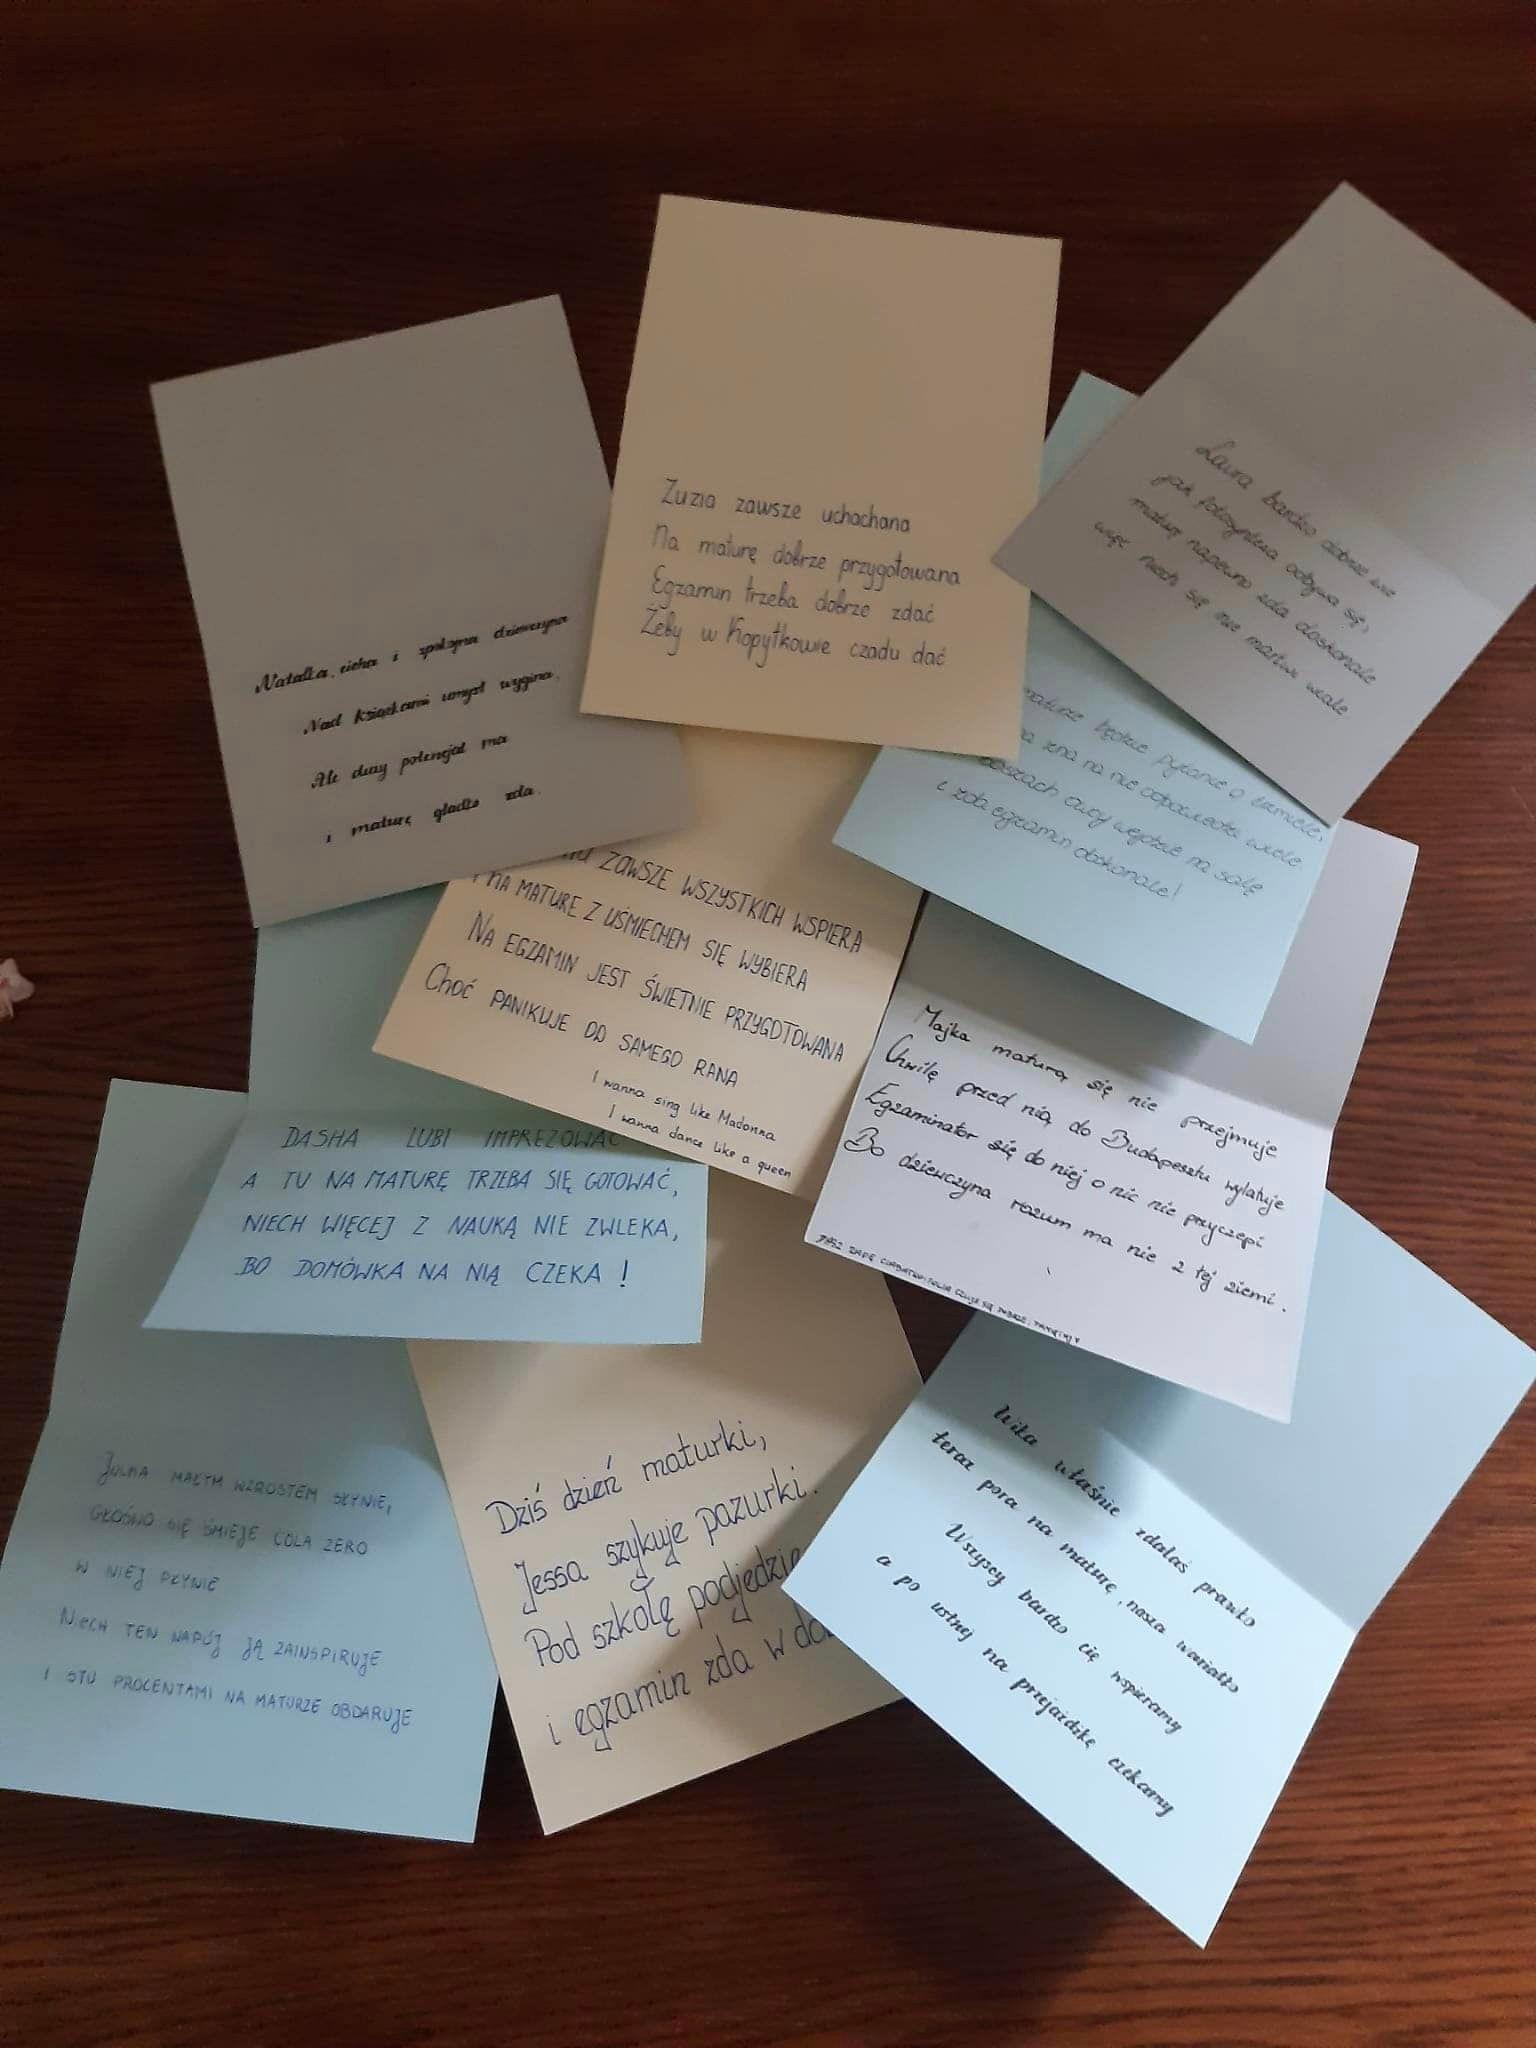 Natalka, cicha i spokojna dziewczyna
Nad książkami umysł wygina,
Ale duży potencjał ma
i maturę gładko zda.
Zuzia zawsze uchachana
Na maturę dobrze przygotowana
Egzamin trzeba dobrze zdać
Żeby w Kopytkowie czadu dać
Laura bardzo dobrze wie
jak fotosynteza odbywa się,
maturę napewno zda doskonale
więc niech się nie martwi wcale
maturze będzie pytanie o
zna na nie odpowiedzi wiele
wejdzie na salę
i zda egzamin doskonale!
ZAWSZE WSZYSTKICH WSPIERA
I NA MATURE Z UŚMIECHEM SIĘ WYBIERA
NA EGZAMIN JEST ŚWIETNIE PRZYGOTOWANA
Choć PANIKUJE OD SAMEGO RANA
I wanna sing like Madonna
I wanna dance like a queen
Majka maturą się nie przejmuje
Chwilę przed nią do Budapesztu wylatuje
Egzaminator się do niej o nic nie przyczepi
Bo dziewczyna rozum ma nie z tej ziemi.
CZUJE SIĘ DOBRZE,
DASHA LUBI IMPREZOWAĆ
A TU NA MATURĘ TRZEBA SIĘ GOTOWAĆ,
NIECH WIĘCEJ Z NAUKĄ NIE ZWLEKA,
BO DOMÓWKA NA NIĄ CZEKA !
JULKA MAŁYM WZROSTEM SŁYNIE,
GŁOŚNO SIĘ ŚMIEJE COLA ZERO
W NIEJ PŁYNIE
NIECH TEN NAPÓJ JĄ ZAINSPIRUJE
I STU PROCENTAMI NA MATURZE OBDARUJE
Dziś dzień maturki,
Jessa szykuje pazurki.
Pod szkołę podjedzie
i egzamin zda w
Wika właśnie zdałaś prawko
teraz pora na maturę, nasza wariatko
Wszyscy bardzo cię wspieramy
a po ustnej na przejażdżkę czekamy